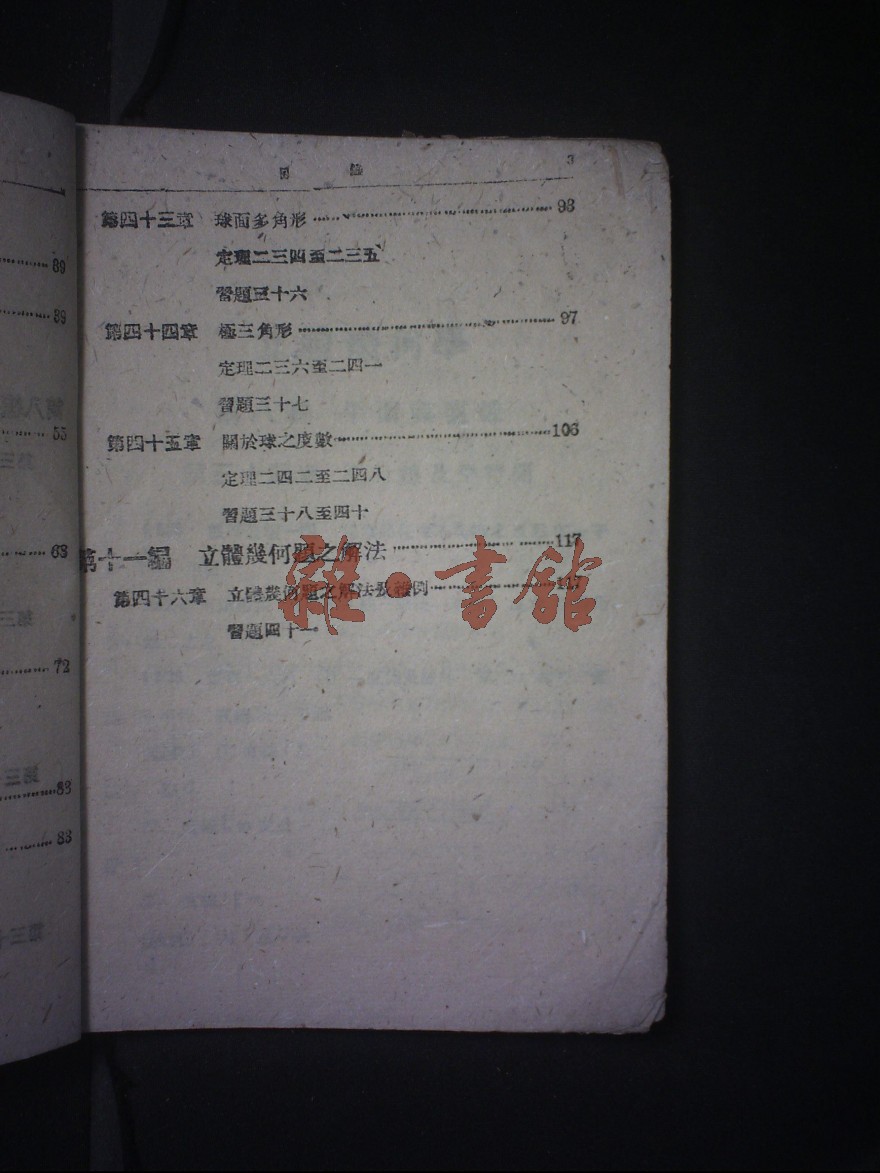 89
89
55
68
72
88
88
目　錄　3
第四十三章　球面多角形 …… 93
定理二三四至二三五
習題三十六
第四十四章　極三角形 …… 97
定理二三六至二四一
習題三十七
第四十五章　關於球之度數 …… 106
定理二四二至二四八
習題三十八至四十
第十一編　立體幾何題之解法 …… 117
第四十六章　立體幾何題之解法及例 …… 117
習題四十一
雜·書館